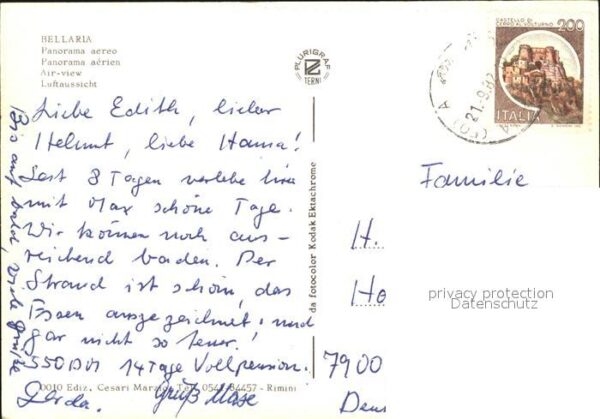 BELLARIA
Panorama aereo
Panorama aérien
Air-view
Luftaussicht
Liebe Edith, lieber
Helmut, liebe Hanna!
Seit 8 Tagen verlebe hier
mit Max schöne Tage.
Wir können noch aus-
reichend baden. Der
Strand ist schön, das
Essen ausgezeichnet und
gar nicht so teuer!
550 DM 14 Tage Vollpension.
Gerda. Gruß Max
Bis auf bald, viele Grüße
0010 Ediz. Cesari Marzio Tel. 0541-84457 - Rimini
PLURIGRAF
TERNI
da fotocolor Kodak Ektachrome
CASTELLO DI
CERRO AL VOLTURNO
200
ITALIA
21-9-8
(FO)
Familie
H.
Ho
7900
Deu
privacy protection
Datenschutz